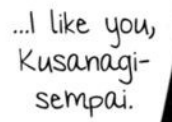 ...I like you,
Kusanagi-
sempai.